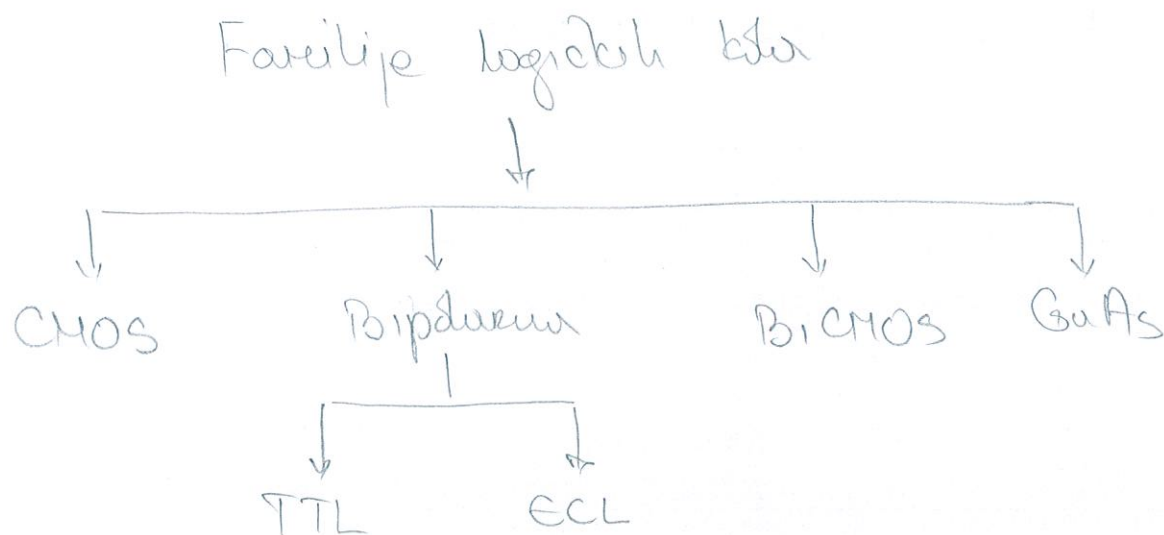 Familije logičkih kola
CMOS Bipolarna BiCMOS GaAs
TTL ECL